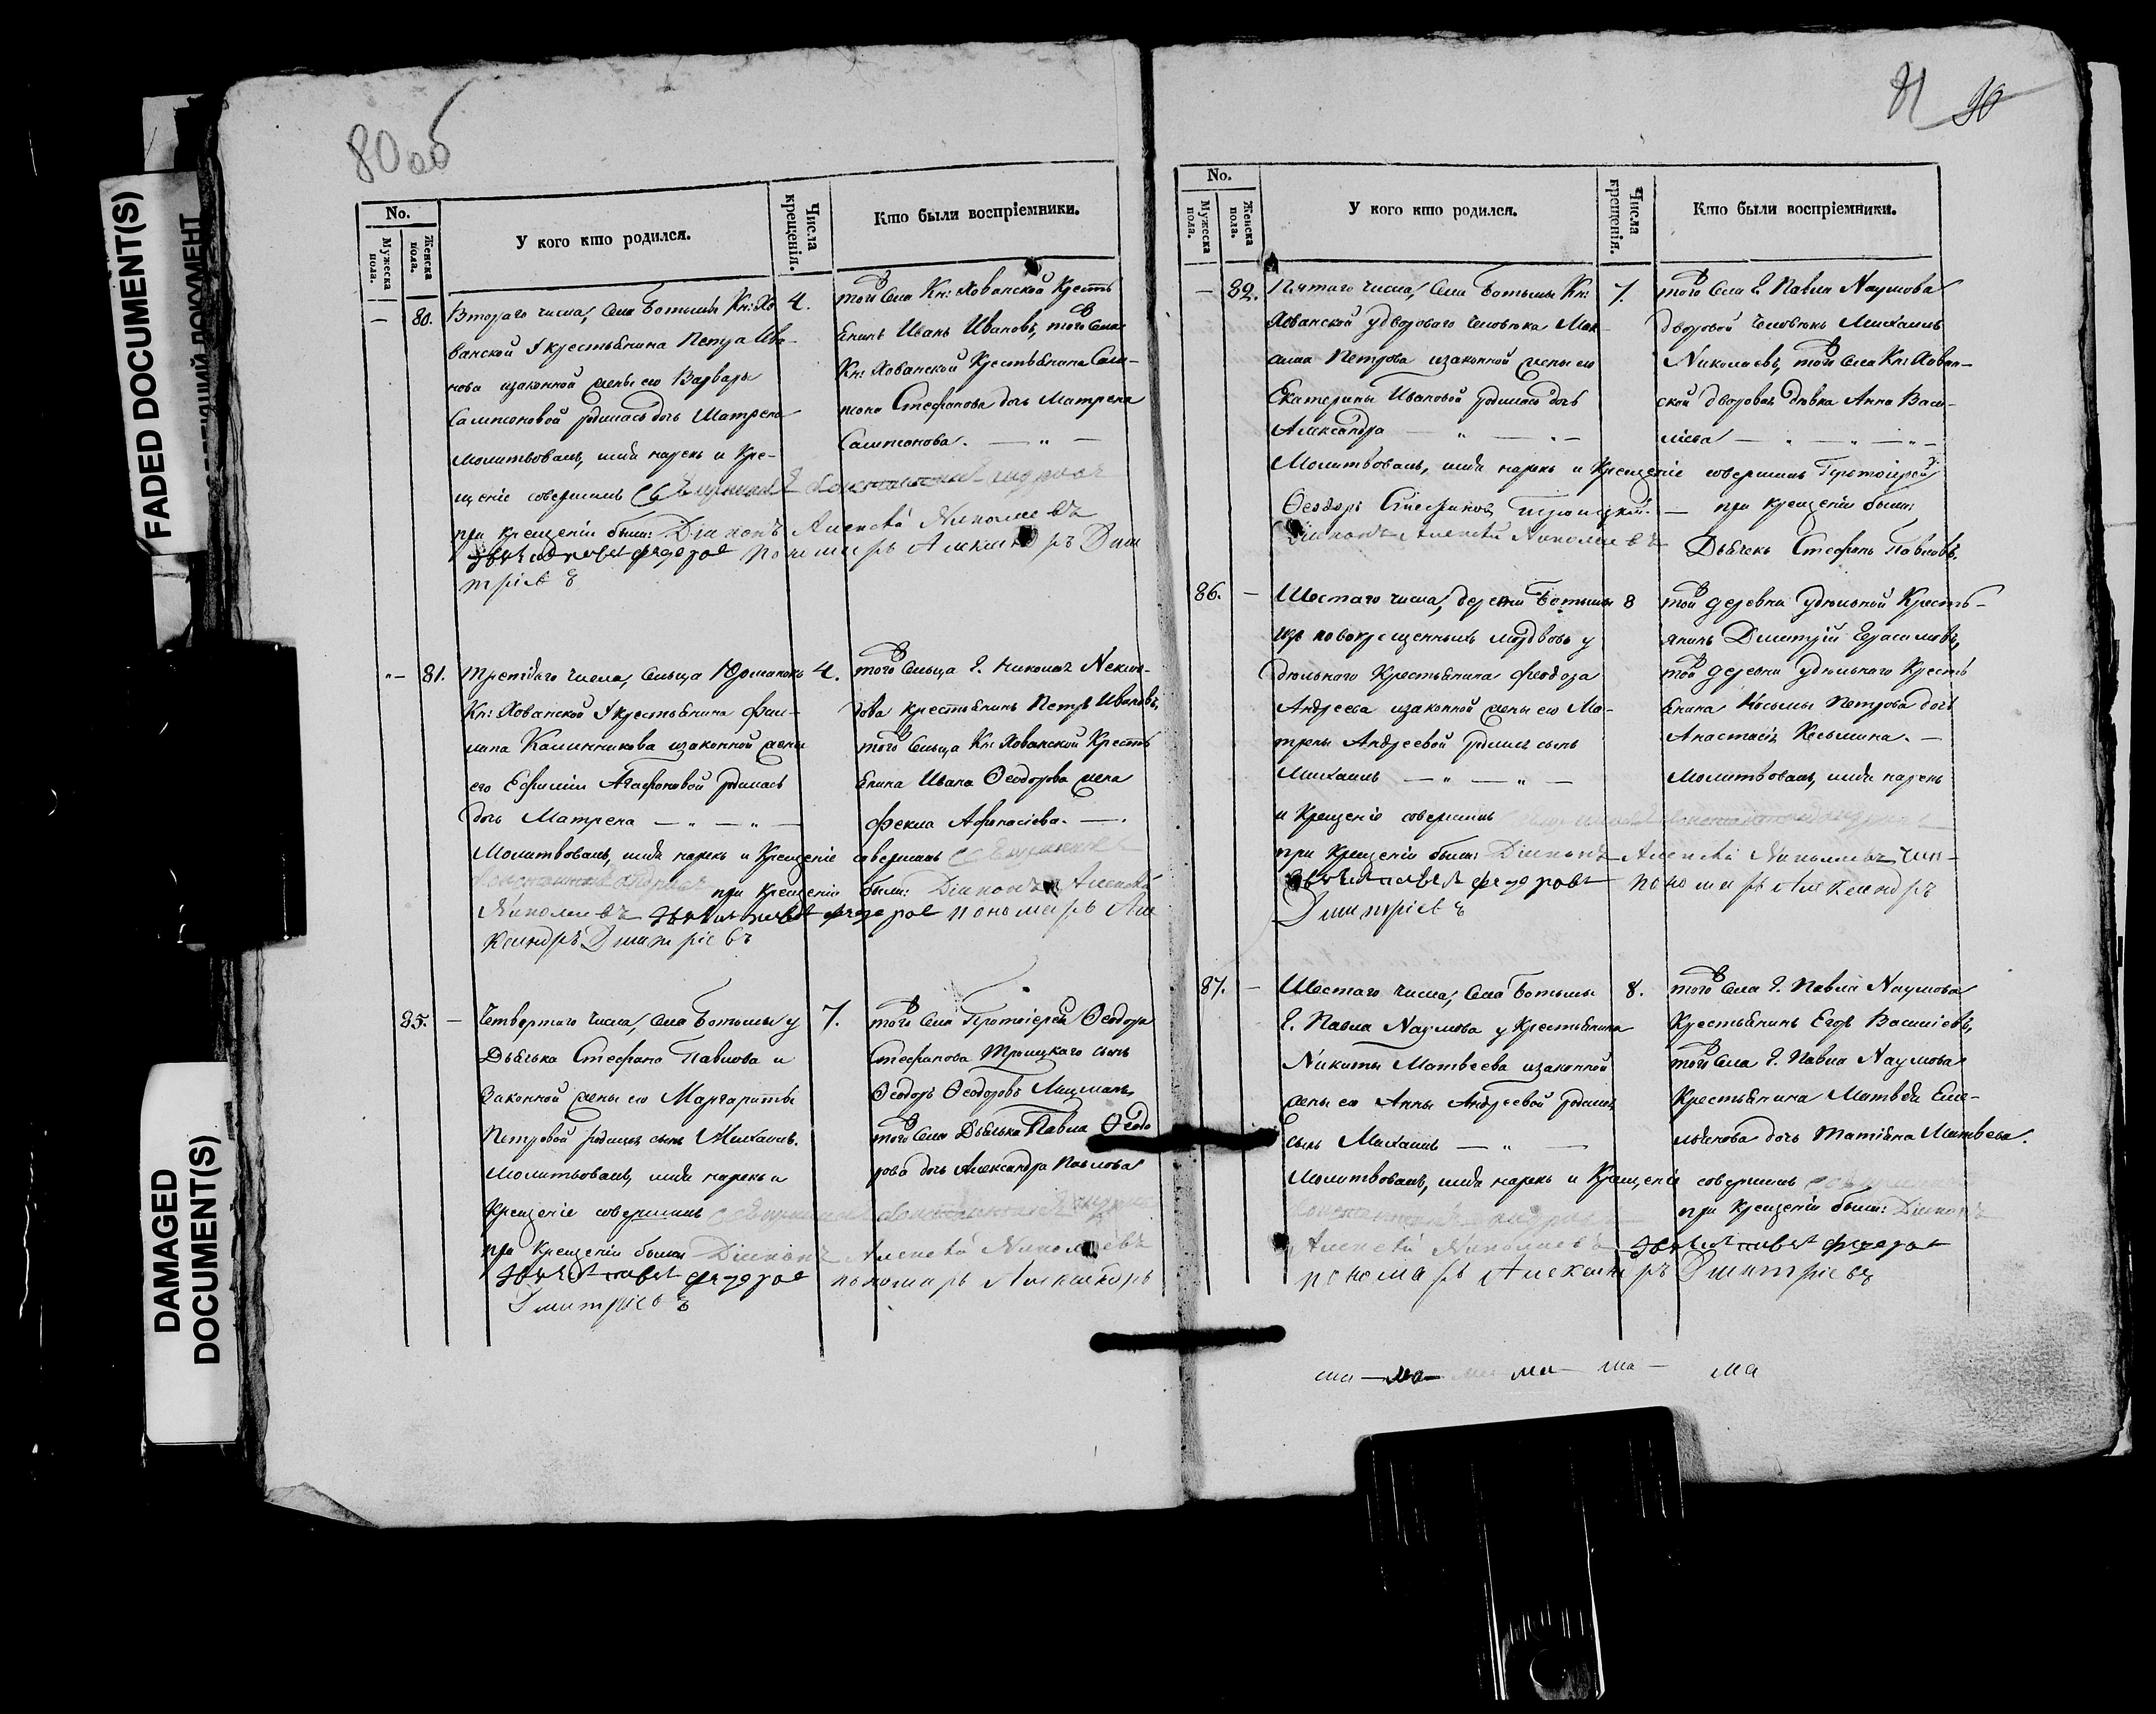 FADED DOCUMENT(S)
DAMAGED DOCUMENT(S)
80об
No.
Мужеска пола.
Женска пола.
У кого кто родился.
Числа крещенія.
Кто были воспріемники.
— 80.
Втораго числа, села Ботьмы Кн: Хо
ванской у крестьянина Петра Ива-
нова и законной жены его Варвары
Сампсоновой родилась дочь Матрена
молитвовалъ, имя нарекъ и Кре-
щеніе совершилъ Священникъ
при крещеніи были: Діаконъ Алексѣй Николаевъ
Пономарь Александръ Дми
тріевъ
4.
того села Кн: Хованской Кресть
янинъ Иванъ Ивановъ, того села
Кн: Хованской Крестьянина Сам-
сона Стефанова дочь Матрена
Сампсонова. — „ —
„— 81.
Третьяго числа, сельца Юрманокъ
Кн: Хованской у крестьянина Фи-
липа Калинникова и законной жены
его Ефиміи Агафоновой родилась
дочь Матрена — „ — „ —
Молитвовалъ, имя нарекъ и Крещеніе совершилъ Священникъ
при крещеніи были: Діаконъ Алексѣй
Николаевъ пономарь Але
ксандръ Дмитріевъ
4.
того сельца Г. Николая Неклю-
дова крестьянинъ Петръ Ивановъ,
того сельца Кн: Хованской Кресть
янина Ивана Ѳеодорова жена
Фекла Афонасіева. —.
85. —
Четвертаго числа, села Ботьмы у
Дьячька Стефана Павлова и
законной жены его Маргариты
Петровой родился сынъ Михаилъ.
Молитвовалъ, имя нарекъ и
Крещеніе совершилъ Священникъ
при Крещеніи были Діаконъ Алексѣй Николаевъ
пономарь Александръ
Дмитріевъ
7.
того села Протоіерея Ѳеодора
Стефанова Троицкаго сынъ
Ѳеодоръ Ѳеодоровъ
того села Дьячька Павла Ѳеодо
рова дочь Александра Павлова
81 90
No.
Мужеска пола.
Женска пола.
У кого кто родился.
Числа крещенія.
Кто были воспріемники.
— 82.
Пятаго числа, села Ботьмы Кн:
Хованской у двороваго человѣка Мак-
сима Петрова и законной жены его
Екатерины Ивановой родилась дочь
Александра — „ — „ —
Молитвовалъ, имя нарекъ и Крещеніе совершилъ Протоіерей
Ѳеодоръ Стефановъ Троицкій. — при крещеніи были:
Діаконъ Алексѣй Николаевъ Дьячекъ Стефанъ Павловъ.
7.
того села Г. Павла Наумова
дворовой человѣкъ Михаилъ
Николаевъ, того села Кн: Хован-
ской дворовая дѣвка Анна Васи-
лїева — „ — „ — „ —
86. —
Шестаго числа, деревни Ботьмы
изъ новокрещенныхъ мордвовъ у
дѣльнаго Крестьянина Феодора
Андреева и законной жены его Ма-
трены Андреевой родился сынъ
Михаилъ — „ — „ —
и Крещеніе совершилъ
при Крещеніи были: Діаконъ Алексѣй Николаевъ
пономарь Александръ
Дмитріевъ
8
той деревни удѣльной Кресть-
янинъ Дмитрій Герасимовъ,
той деревни удѣльнаго Кресть
янина Косьмы Петрова дочь
Анастасія Косьмина. —
Молитвовалъ, имя нарекъ
87. —
Шестаго числа, села Ботьмы
Г. Павла Наумова у Крестьянина
Никиты Матвеева и законной
жены его Анны Андреевой родился
сынъ Михаилъ — „ —
Молитвовалъ, имя нарекъ и Крещеніе совершилъ
при Крещеніи были: Діаконъ
Алексѣй Николаевъ
пономарь Александръ Дмитріевъ
8.
того села Г. Павла Наумова
Крестьянинъ Егоръ Васильевъ,
того села Г. Павла Наумова
Крестьянина Матвѣя Еме-
льянова дочь Татіана Матвеева.